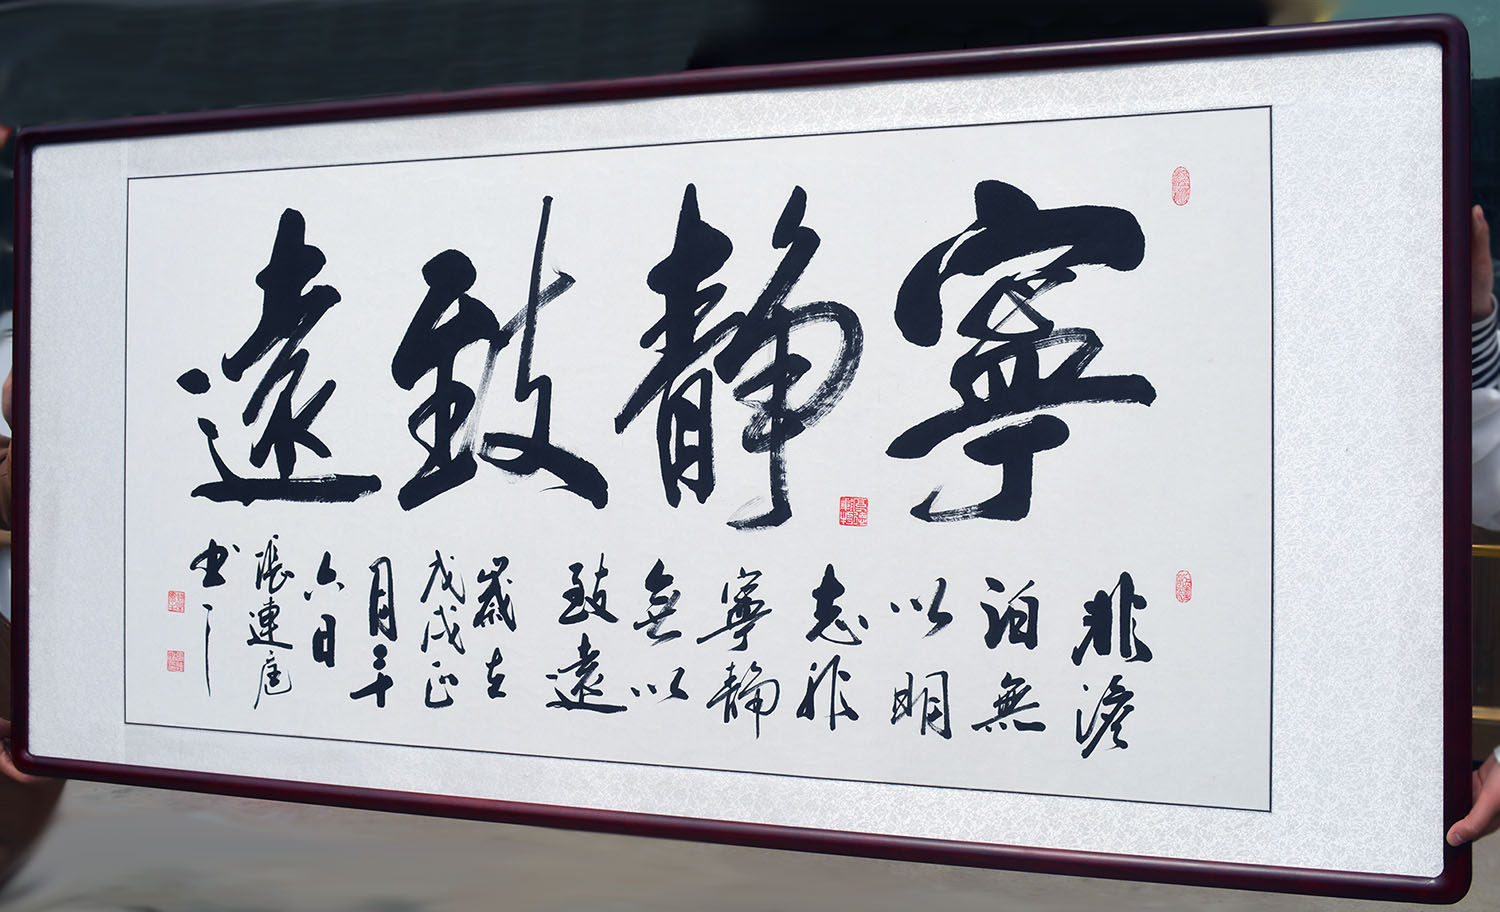 寧静致遠
非澹
泊無
以明
志非
寧静
無以
致遠
歲在
戊戌正
月二十
六日
張連庭
书